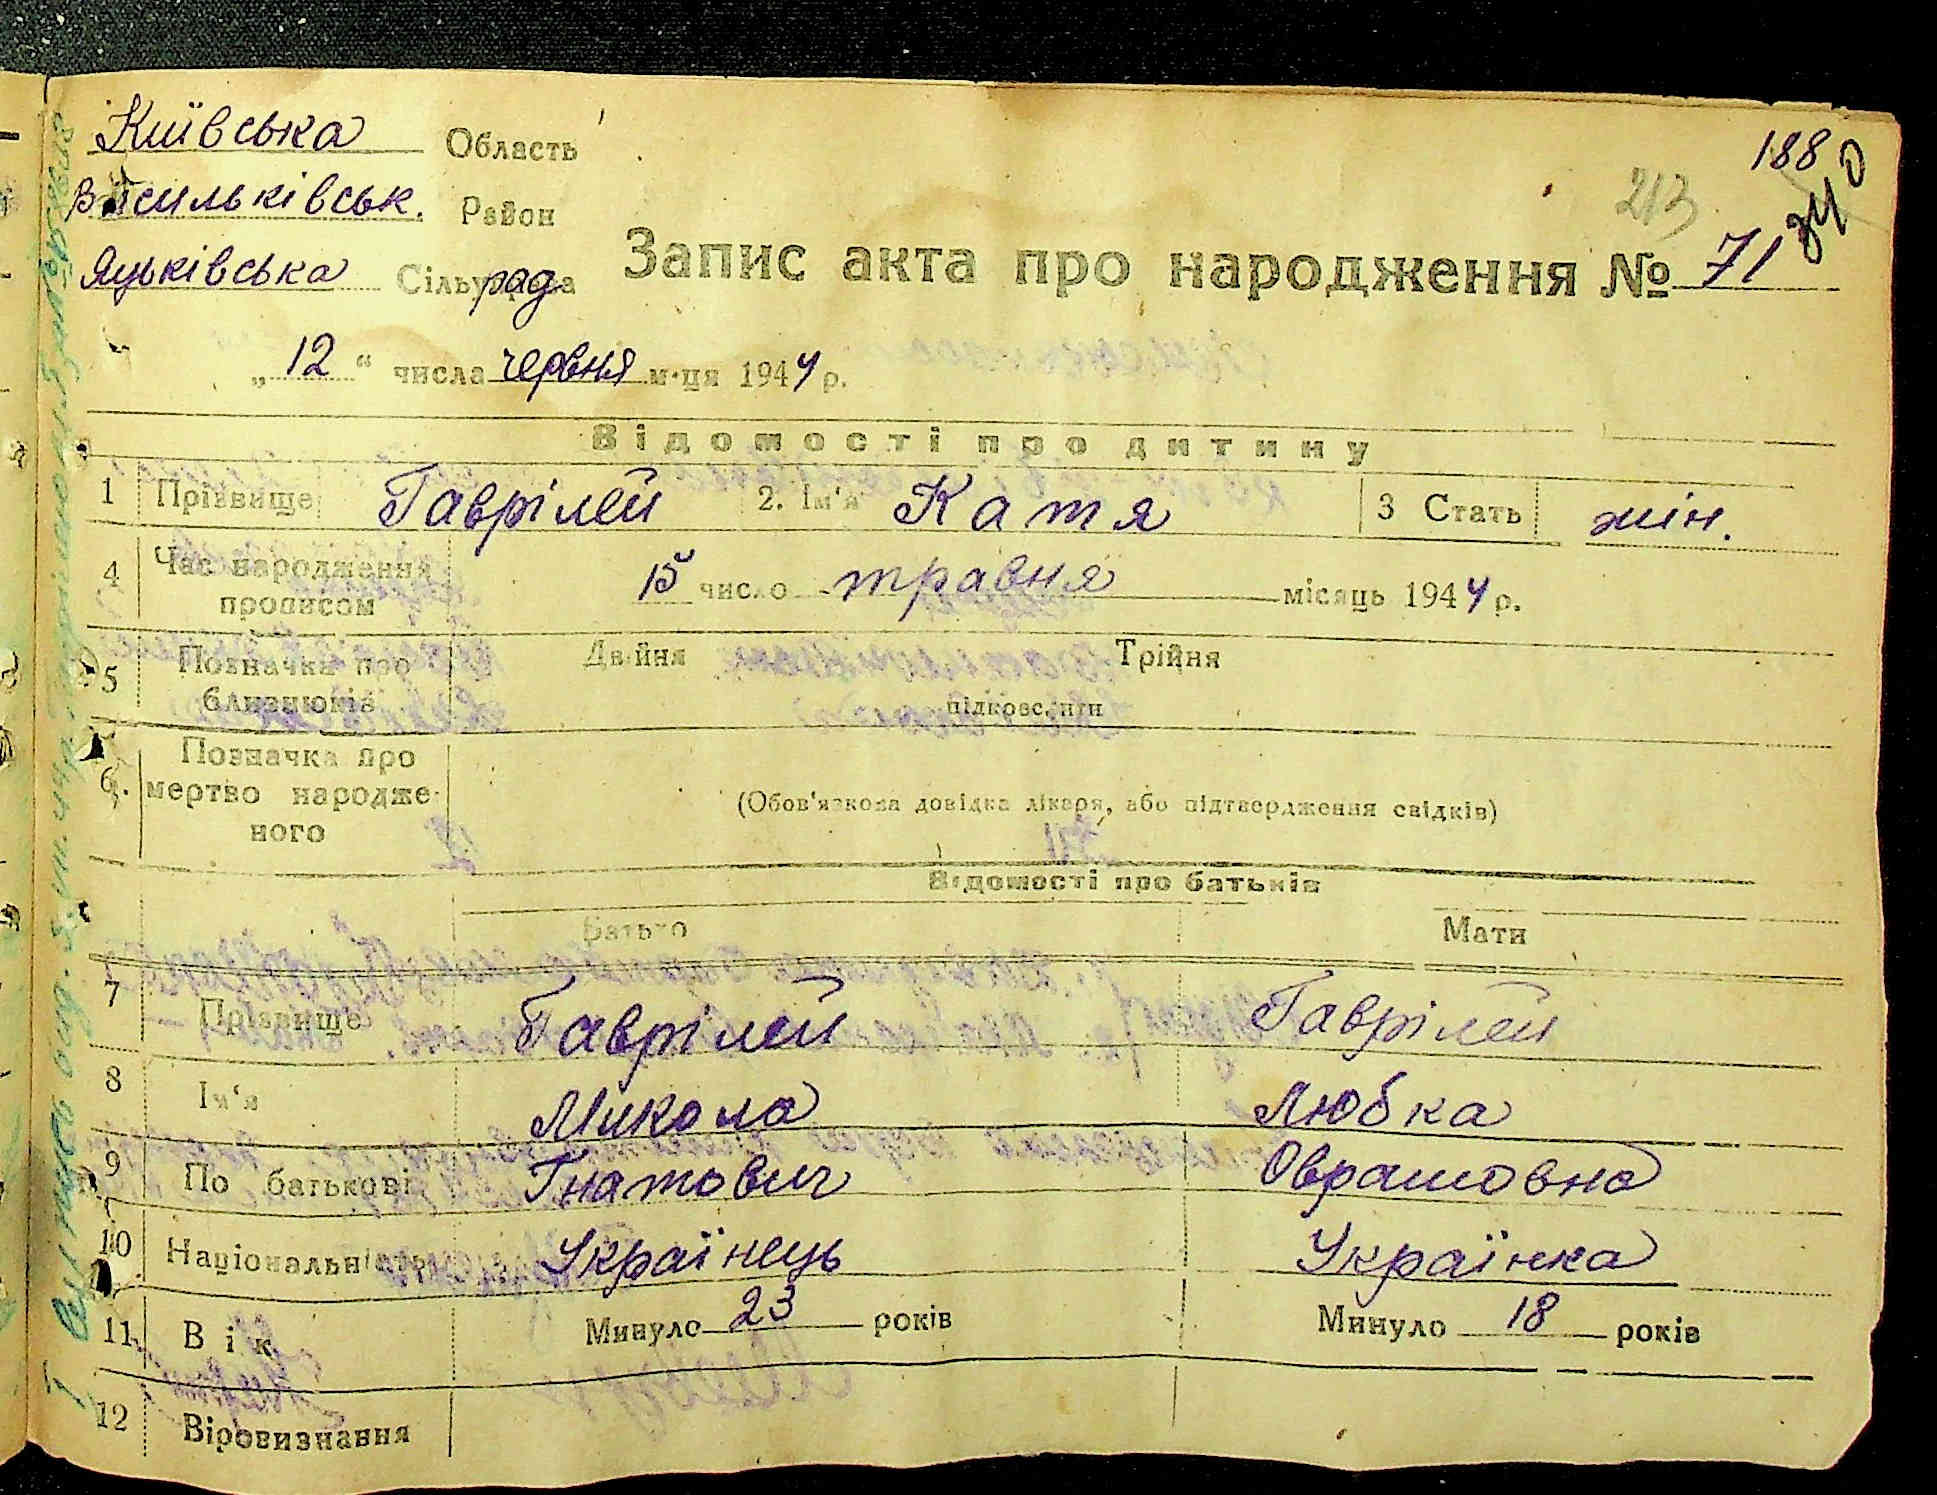 Київська Область
Васильківськ. Район
Яцьківська Сільуправа рад
188
213
240
Запис акта про народження № 71
„ 12 “ числа червня м-ця 1944 р.
Відомості про дитину
1 Прізвище Гаврілей 2. Ім'я Катя 3 Стать жін.
4 Час народження прописом 15 число травня місяць 1944 р.
5 Позначка про близнюків Двійня Трійня
підкреслити
6. Позначка про мертво народженого
(Обов'язкова довідка лікаря, або підтвердження свідків)
Відомості про батьків
Батько Мати
7 Прізвище Гаврілей Гаврілей
8 Ім'я Микола Любка
9 По батькові Гнатович Оврамовна
10 Національність Українець Українка
11 Вік Минуло 23 років Минуло 18 років
12 Віровизнання